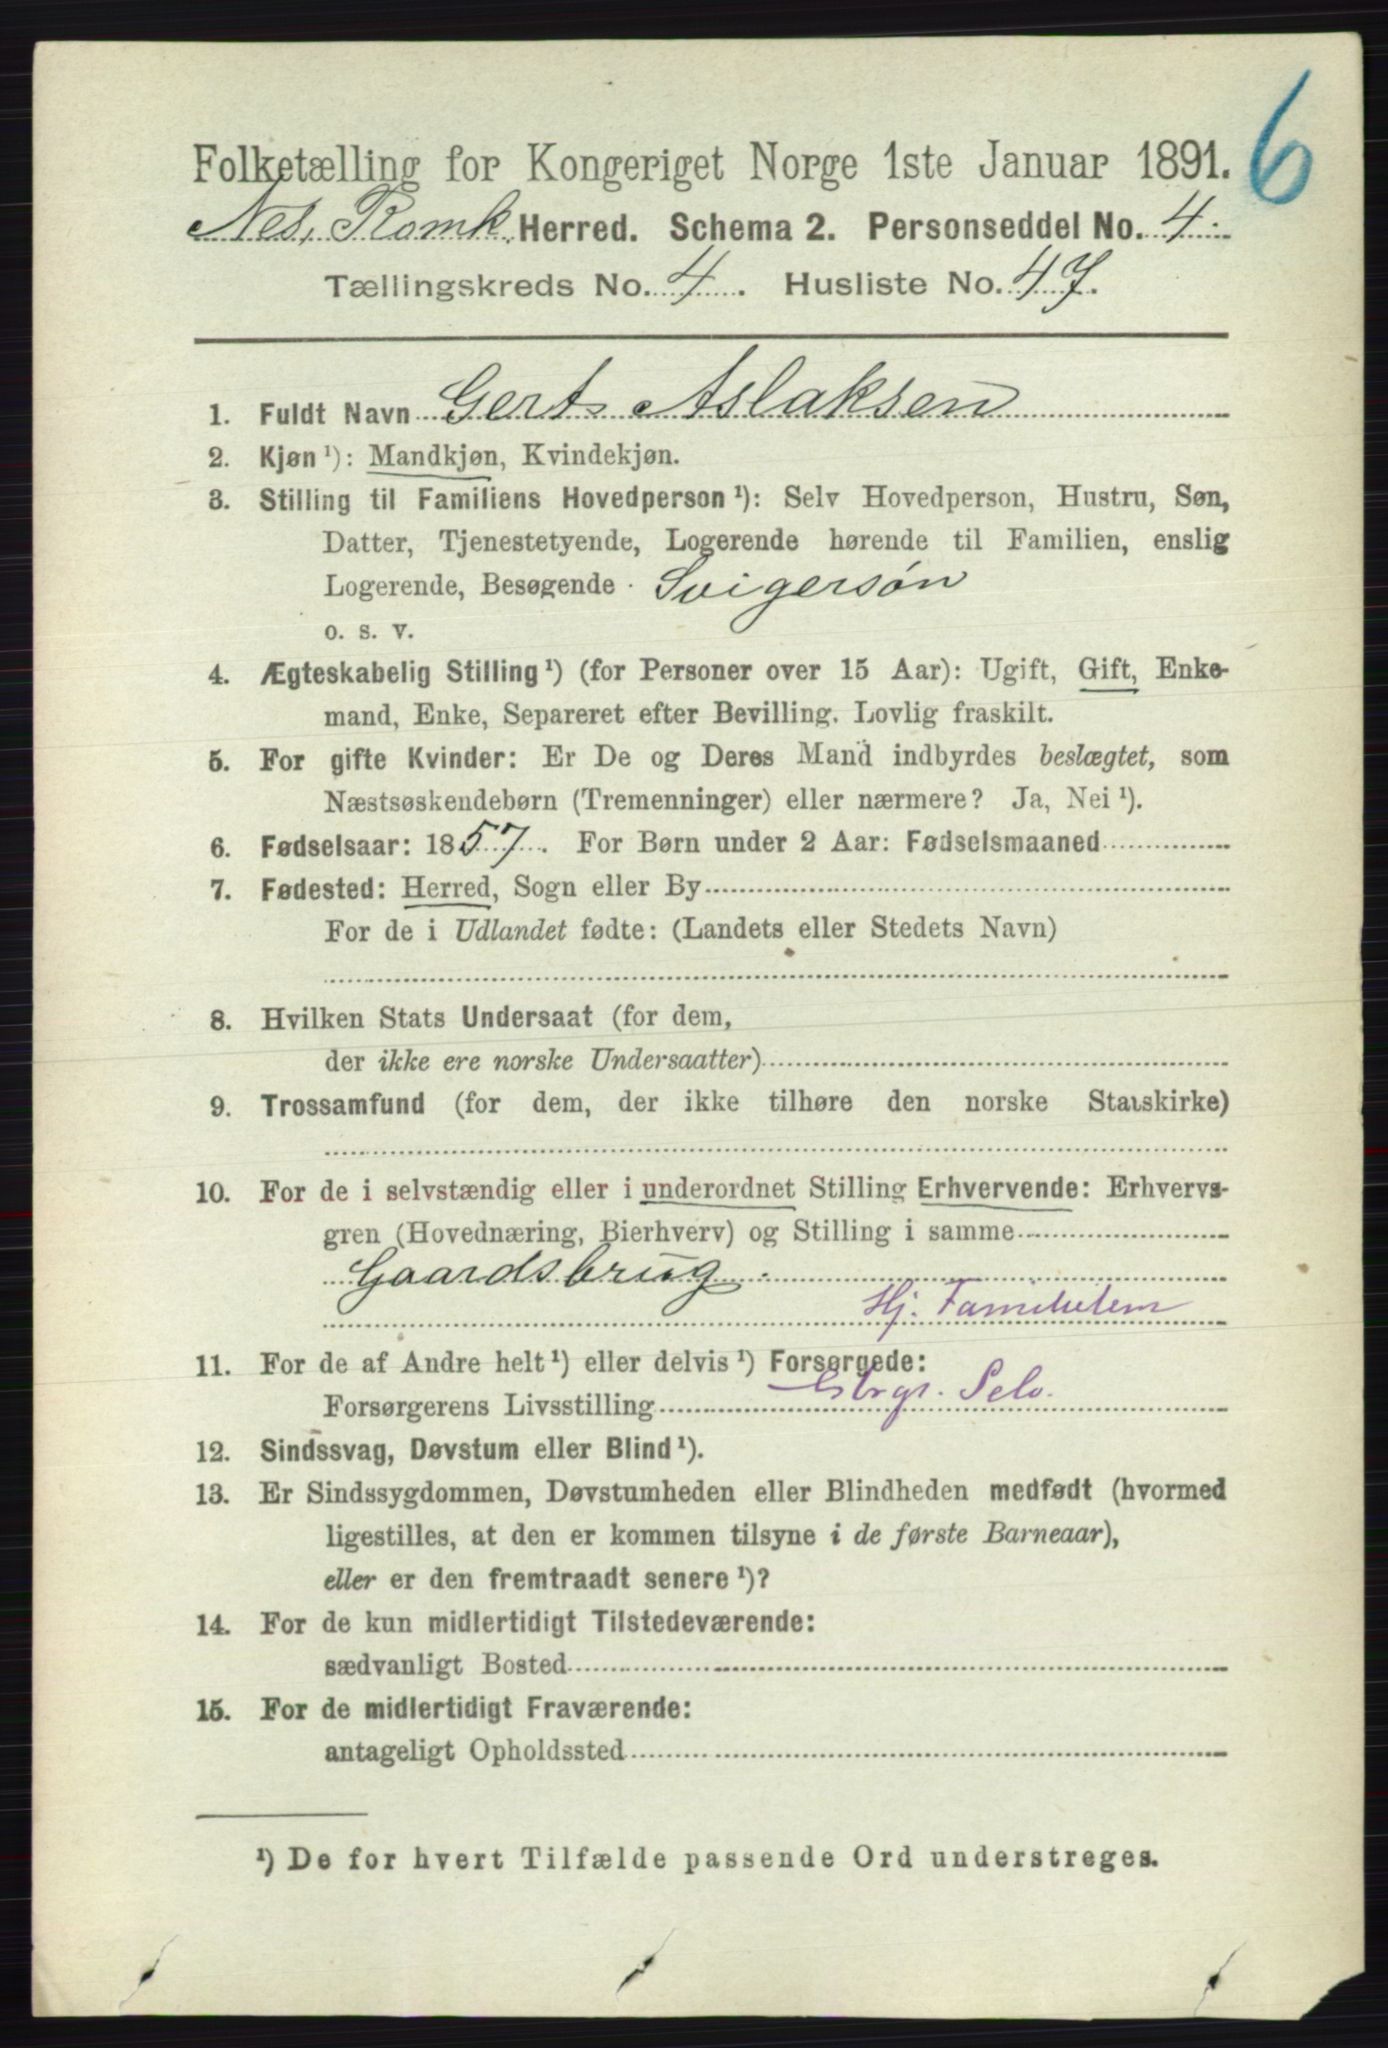 6
Folketælling for Kongeriget Norge 1ste Januar 1891.
Nes, Romk. Herred. Schema 2. Personseddel No. 4.
Tællingskreds No. 4. Husliste No. 47.
1. Fuldt Navn Gert Aslaksen
2. Kjøn ¹): Mandkjøn, Kvindekjøn.
3. Stilling til Familiens Hovedperson ¹): Selv Hovedperson, Hustru, Søn,
Datter, Tjenestetyende, Logerende hørende til Familien, enslig
Logerende, Besøgende Svigersøn
o. s. v.
4. Ægteskabelig Stilling ¹) (for Personer over 15 Aar): Ugift, Gift, Enke-
mand, Enke, Separeret efter Bevilling. Lovlig fraskilt.
5. For gifte Kvinder: Er De og Deres Mand indbyrdes beslægtet, som
Næstsøskendebørn (Tremenninger) eller nærmere? Ja, Nei ¹).
6. Fødselsaar: 1857. For Børn under 2 Aar: Fødselsmaaned
7. Fødested: Herred, Sogn eller By
For de i Udlandet fødte: (Landets eller Stedets Navn)
8. Hvilken Stats Undersaat (for dem,
der ikke ere norske Undersaatter)
9. Trossamfund (for dem, der ikke tilhøre den norske Statskirke)
10. For de i selvstændig eller i underordnet Stilling Erhvervende: Erhvervs-
gren (Hovednæring, Bierhverv) og Stilling i samme
Gaardsbrug.
Hj. Familielem
11. For de af Andre helt ¹) eller delvis ¹) Forsørgede:
Forsørgerens Livsstilling Gbrgr. Selv.
12. Sindssvag, Døvstum eller Blind ¹).
13. Er Sindssygdommen, Døvstumheden eller Blindheden medfødt (hvormed
ligestilles, at den er kommen tilsyne i de første Barneaar),
eller er den fremtraadt senere ¹)?
14. For de kun midlertidigt Tilstedeværende:
sædvanligt Bosted
15. For de midlertidigt Fraværende:
antageligt Opholdssted
¹) De for hvert Tilfælde passende Ord understreges.